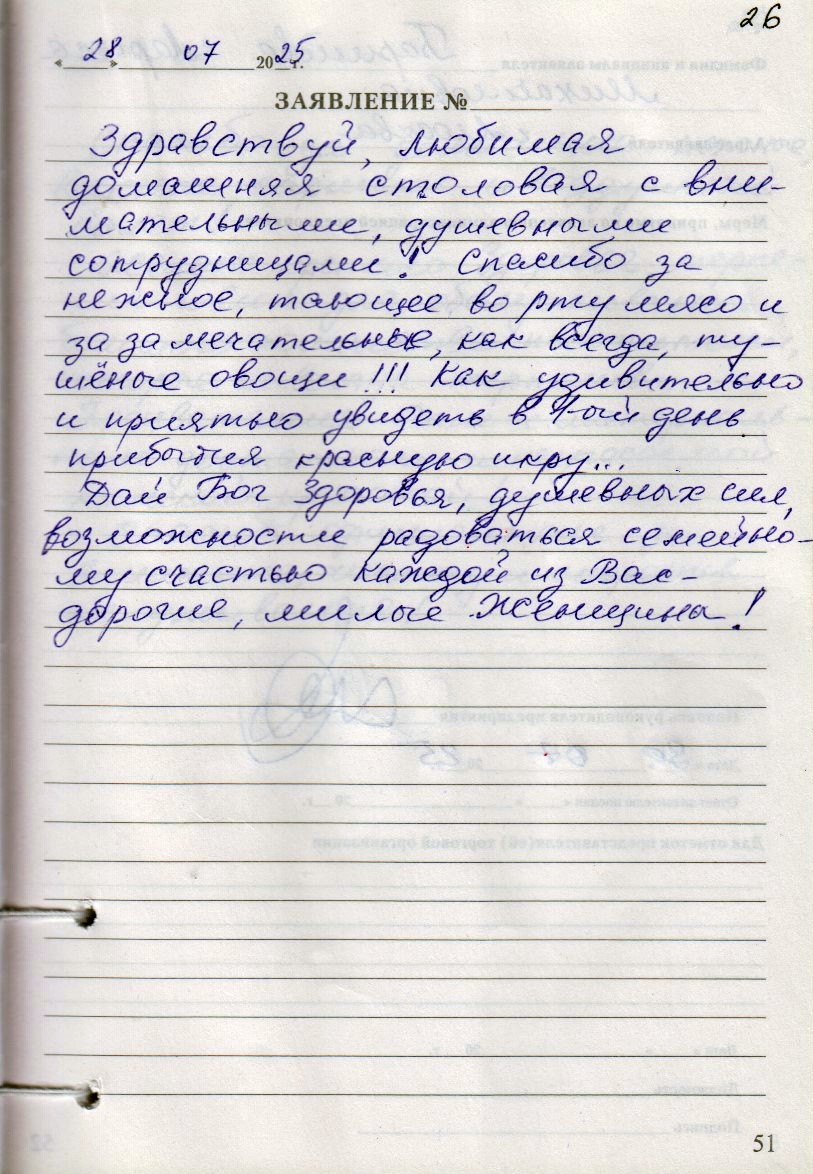 26
« 28 » 07 2025 г.
ЗАЯВЛЕНИЕ №
Здравствуй, любимая
домашняя столовая с вни-
мательными, душевными
сотрудницами! Спасибо за
нежное, тающее во рту мясо и
за замечательные, как всегда, ту-
шёные овощи!!! Как удивительно
и приятно увидеть в 1-ый день
прибытия красную икру...
Дай Бог Здоровья, душевных сил,
возможности радоваться семейно-
му счастью каждой из Вас -
дорогие, милые Женщины!
51